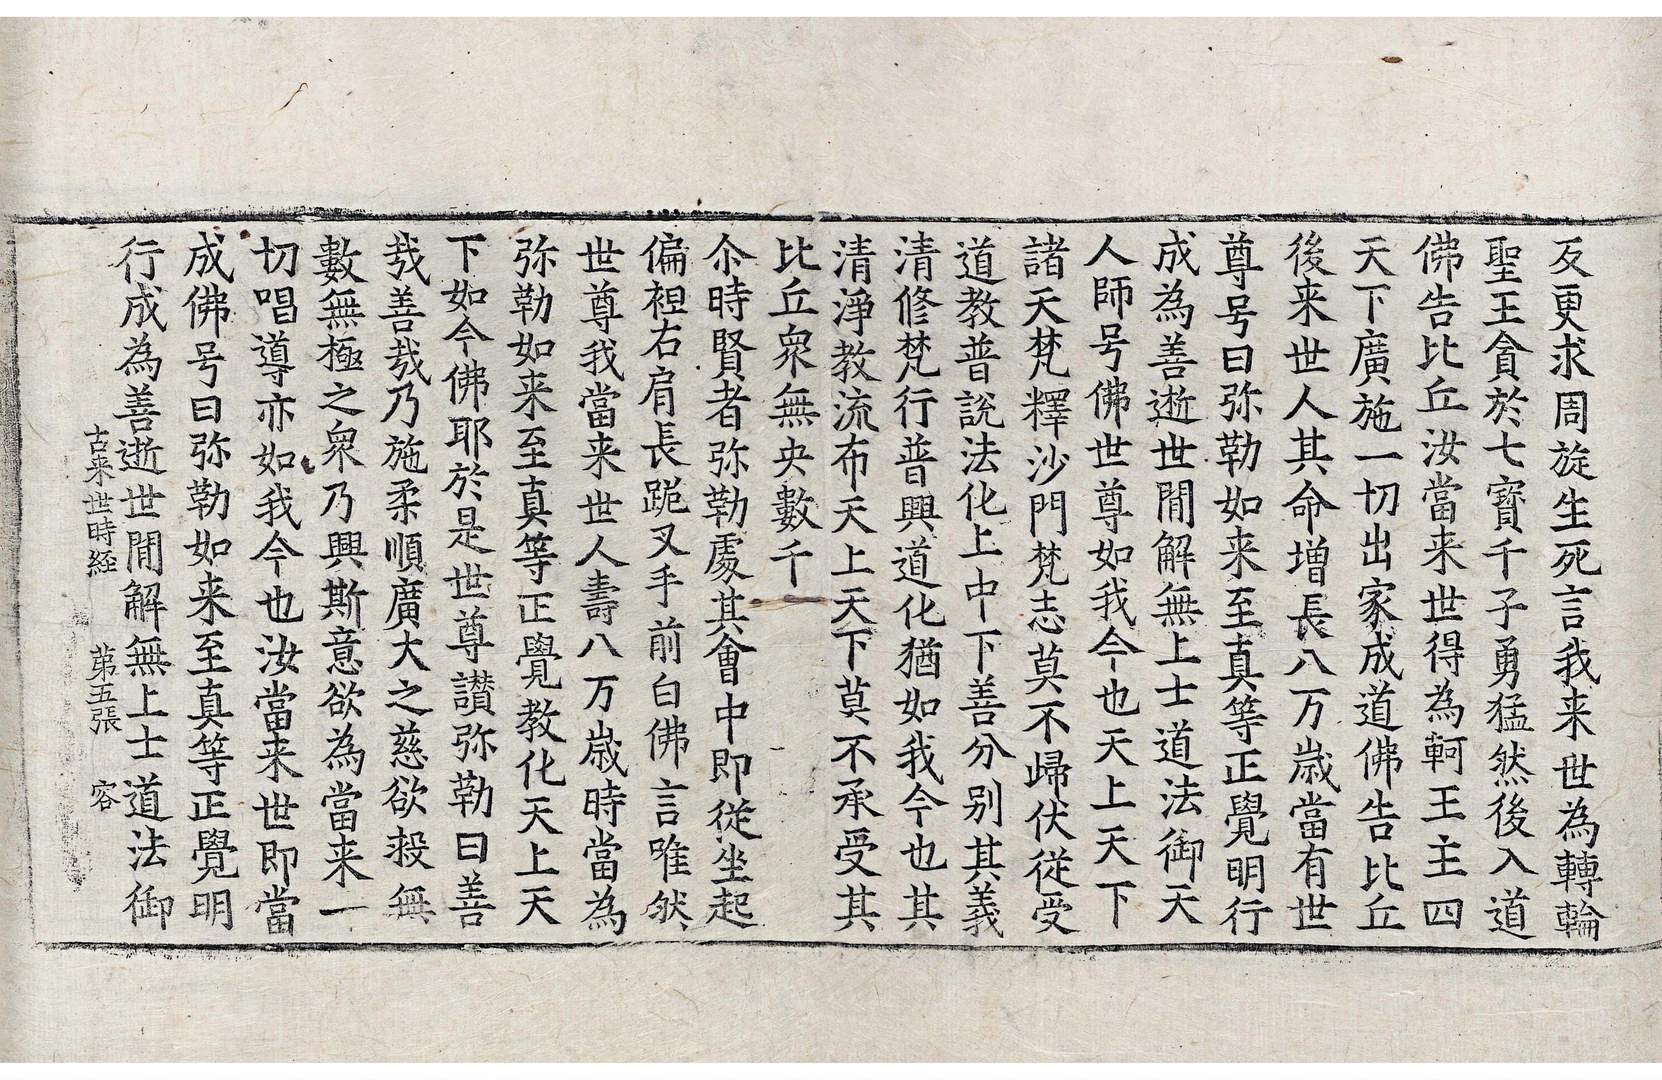 反更求周旋生死言我来世為轉輪
聖王貪於七寳千子勇猛然後入道
佛告比丘汝當来世得為軻王主四
天下廣施一切出家成道佛告比丘
後来世人其命增長八万歲當有世
尊号曰弥勒如来至真等正覺明行
成為善逝世間解無上士道法御天
人師号佛世尊如我今也天上天下
諸天梵釋沙門梵志莫不歸伏從受
道教普說法化上中下善分别其義
清修梵行普興道化猶如我今也其
清淨教流布天上天下莫不承受其
比丘衆無央數千
尒時賢者弥勒處其會中即從坐起
偏袒右肩長跪叉手前白佛言唯然
世尊我當来世人壽八万歲時當為
弥勒如来至真等正覺教化天上天
下如今佛耶於是世尊讃弥勒曰善
㢤善㢤乃施柔順廣大之慈欲救無
數無極之衆乃興斯意欲為當来一
切唱導亦如我今也汝當来世即當
成佛号曰弥勒如来至真等正覺明
行成為善逝世間解無上士道法御
古来世時経 苐五張 容